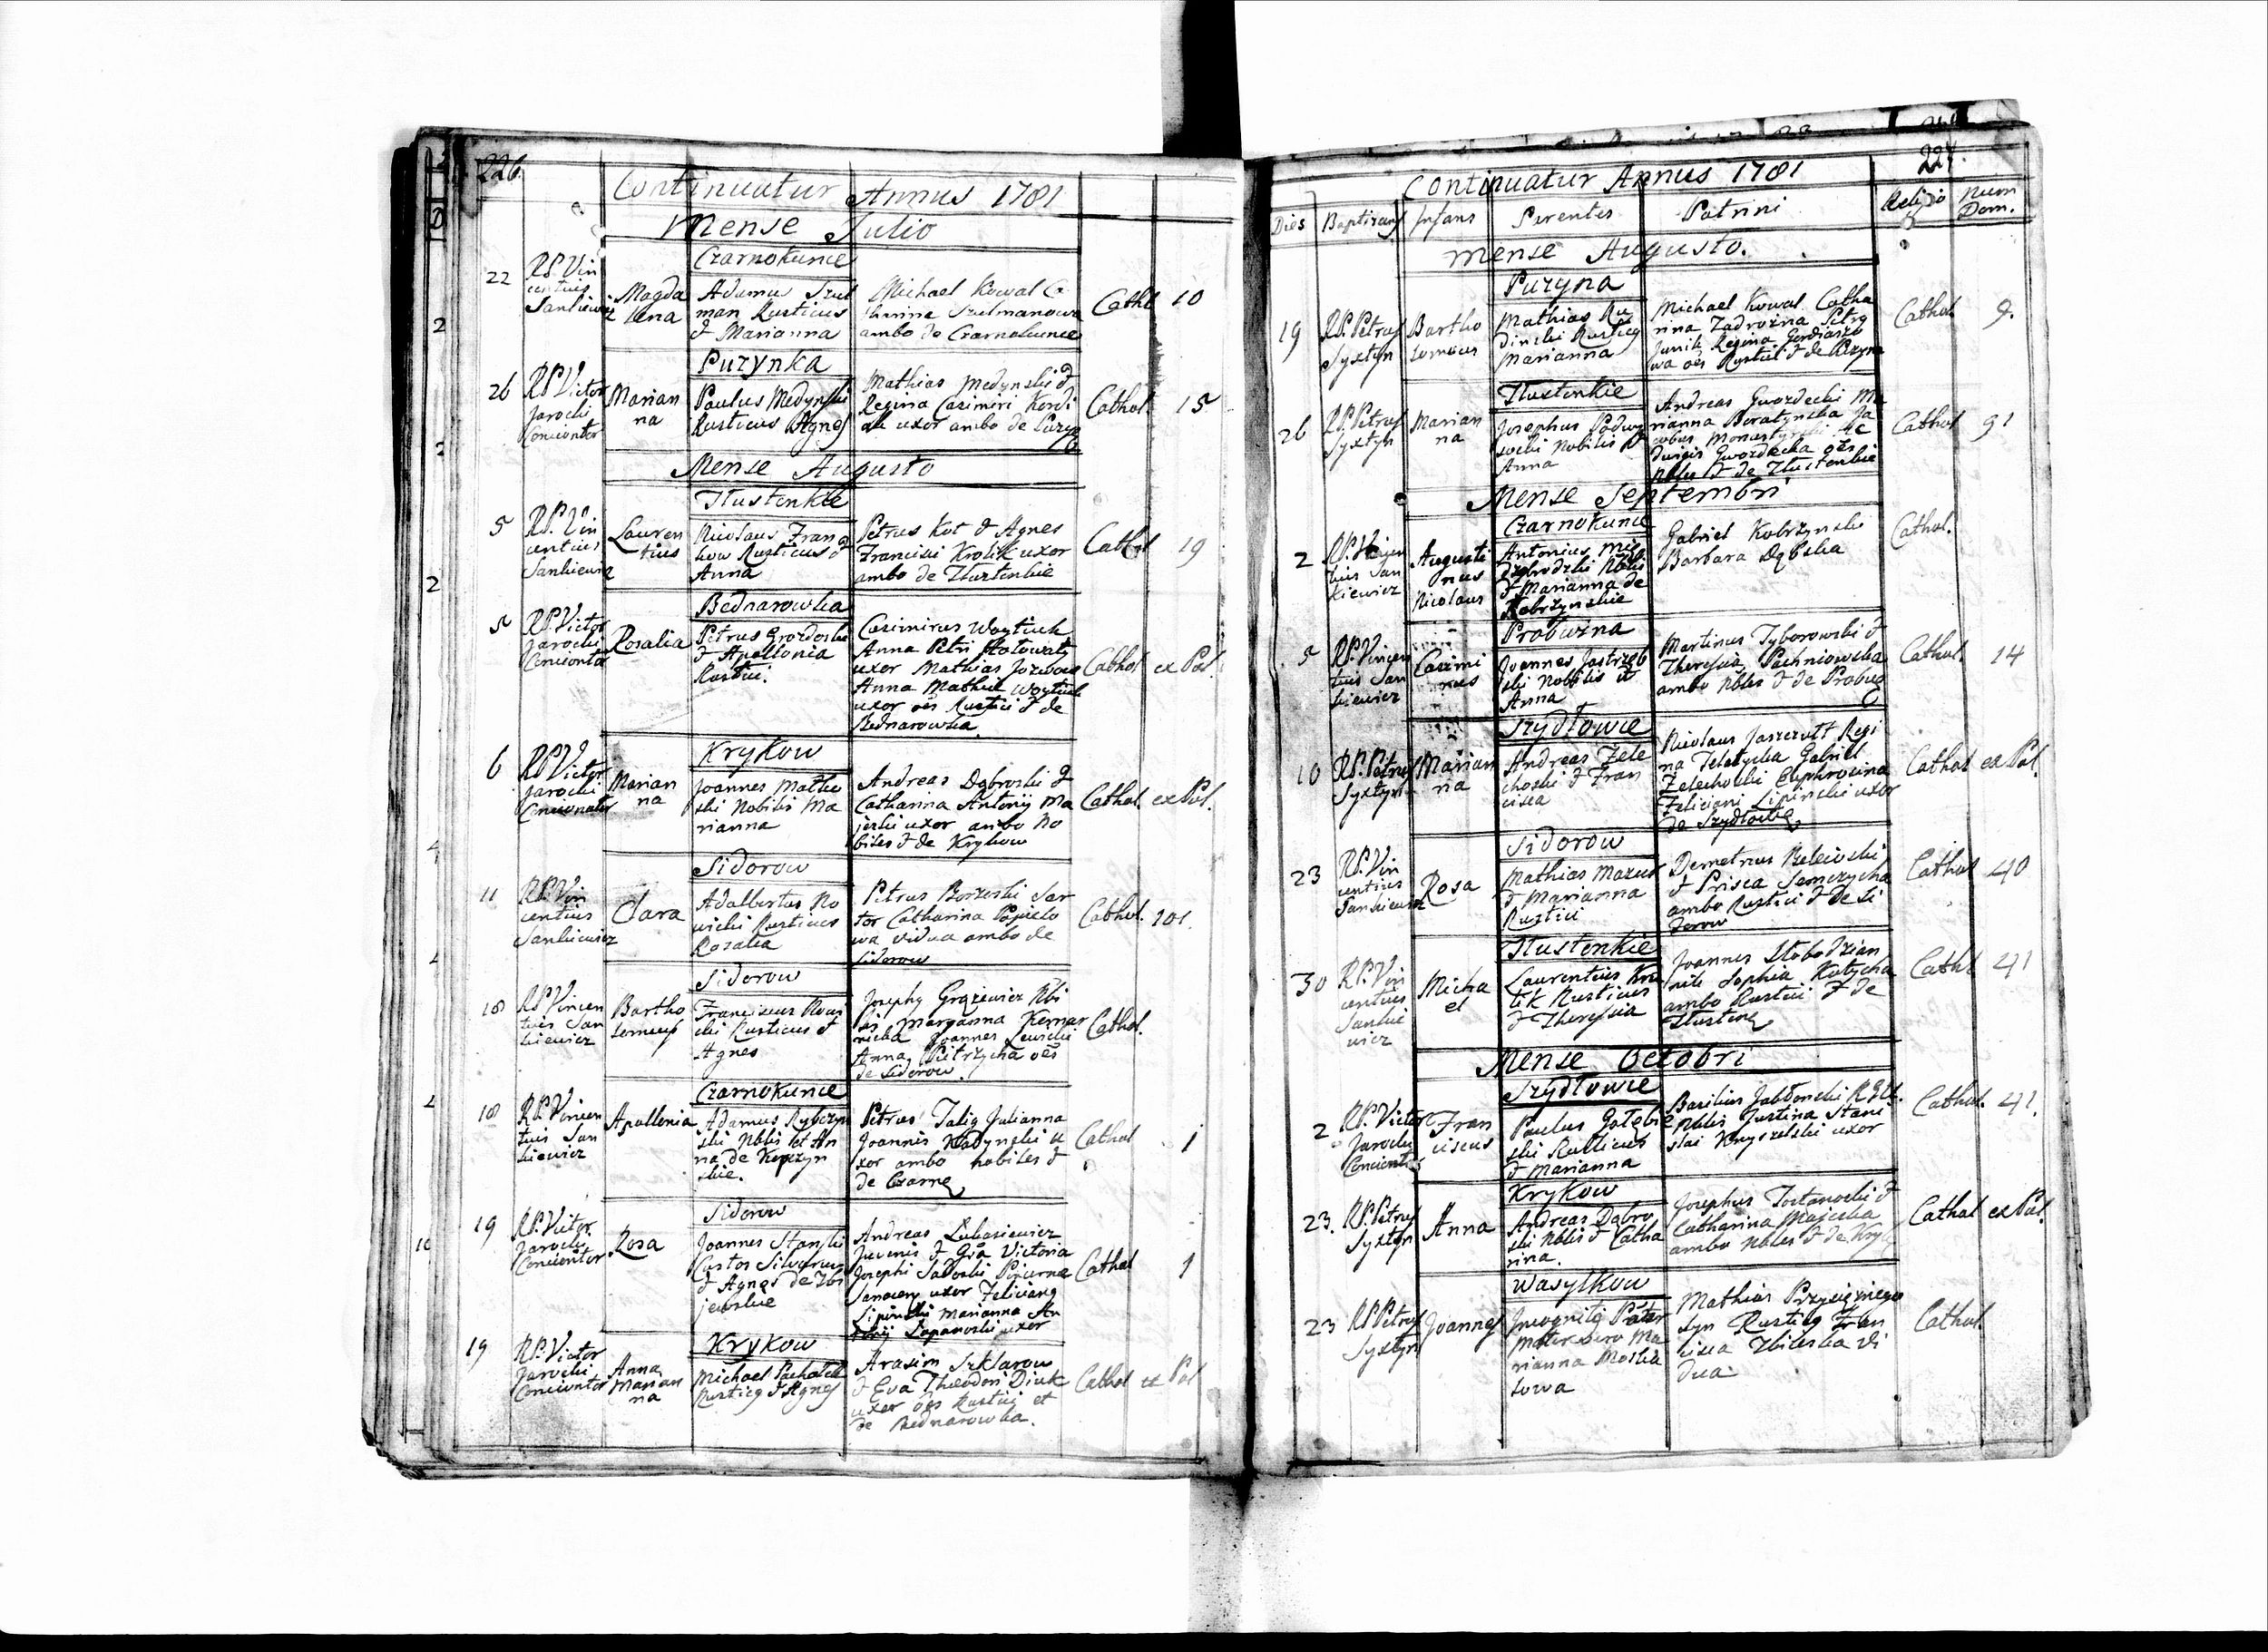 226.
Continuatur Annus 1781
Mense Julio
Czarnokunce
22
RP. Vin
centius
Sankiewicz
Magda
lena
Adamus Szul
man Rusticus
& Marianna
Michael Kowal Ca
tharina Szulmanowa
ambo de Czarnokunce
Cathl
10
Puzynka
26
RP Victor
Jarocki
Concionator
Marian
na
Paulus Medynski
Rusticus Agnes
Mathias Medynski &
Regina Casimiri Kordi
ak uxor ambo de Puzyn
Cathol.
15
Mense Augusto
Tlustenkie
5
RP. Vin
centius
Sankiewicz
Lauren
tius
Nicolaus Fran
kow Rusticus &
Anna
Petrus Kot & Agnes
Francisci Krolik uxor
ambo de Tlustenkie
Cathol
19
Bednarowka
5
RP. Victor
Jarocki
Concionator
Rosalia
Petrus Grozdoski
& Apollonia
Rustici.
Casimirus Woytiuk
Anna Petri Hotowaty
uxor Mathias
Anna Mathiei Woytiuk
uxor oes Rustici & de
Bednarowka
Cathol
ex Pol.
Krykow
6
RP Victor
Jarocki
Concionator
Marian
na
Joannes Malkie
ski Nobilis Ma
rianna
Andreas Dąbroski &
Catharina Antonij Ma
jeski uxor ambo No
biles & de Krykow
Cathol.
ex Pol.
Sidorow
11
RP. Vin
centius
Sankiewicz
Clara
Adalbertus No
wicki Rusticus
Rozalia
Petrus Borzeski Sar
tor Catharina
wa vidua ambo de
Sidorow
Cathol.
101.
Sidorow
18
RP Vincen
tius San
kiewicz
Bartho
lomeus
Franciscus
Rusticus &
Agnes
Josephus Grązewicz Nbi
lis Maryanna
Joannes Lewicki
Anna Pietrzycha oes
de Sidorow.
Cathol.
Czarnokunce
18
RP. Vincen
tius San
kiewicz
Apollonia
Adamus Rybczyn
ski Nblis et An
na de
skie.
Petrus Talig Julianna
Joannis u
xor ambo nobiles &
de Czarne
Cathol
1
Sidorow
19
RP. Victor
Jarocki
Concionator
Rosa
Joannes Stanski
Custos Silvarum
& Agnes de Zbi
jewskie
Andreas Lukasiewicz
Juvenis & Gsa Victoria
Josephi Saboski
uxor Feliciany
Lipinski Marianna An
tonij Lopanoski uxor
Cathol
1
Krykow
19
RP. Victor
Jarocki
Concionator
Anna
Marian
na
Michael Pachalek
Rusticg & Agnes
Arasim Szklarow
& Eva Theodori Diuk
uxor oes Rustici et
de Bednarowka.
Cathol
ex Pol
227.
Continuatur Annus 1781
Dies
Baptizans
Infans
Parentes
Patrini
Religio
Num
Dom.
Mense Augusto.
Puzyna
19
RP. Petrus
Syxtyn
Bartho
lomeus
Mathias Ru
dinski Rusticg
Marianna
Michael Kowal Catha
rina Zadrożna Petrg
Janik Regina
wa oes Rustici & de Puzyn
Cathol
9.
Tlustenkie
26
RP. Petrus
Syxtyn
Marian
na
Josephus Podwy
socki Nobilis &
Anna
Andreas Gwozdecki Ma
rianna Boratynska Ja
cobus Monastyrski He
dwigis Gwozdecka oes
Nbles & de Tlustenkie
Cathol
91
Mense Septembri
Czarnokunce
2
RP. Vincen
tius San
kiewicz
Augusti
nus
Nicolaus
Antonius
Nblis
& Marianna de
Kobrzynskie
Gabriel Kobrzynski
Barbara Dąbska
Cathol.
Probuzna
5
RP. Vincen
tius San
kiewicz
Casimi
rus
Joannes Jastrzęb
ski Nobilis &
Anna
Martinus Tyborowski &
Theresia Pachniowska
ambo Nbles & de Probug
Cathol.
14
Szydlowce
10
RP. Petrus
Syxtyn
Marian
na
Andreas Zele
choski & Fran
cisca
Nicolaus Jaszczolt Regi
na Teletycka Gabriel
Zelechoski Euphrosina
Feliciani Lipinski uxor
de Szydlowce
Cathol
ex Pol.
Sidorow
23
RP. Vin
centius
Sankiewicz
Rosa
Mathias Mazur
& Marianna
Rustici
Demetrius Beleioski
& Prisca Semczycha
ambo Rustici & de Si
dorow
Cathol
40
Tlustenkie
30
RP. Vin
centius
Sankie
wicz
Micha
el
Laurentius Kro
lik Rusticus
& Theressia
Joannes Slobodzian
nik Sophia Kutycha
ambo Rustici & de
Tlusteng
Cathl
41
Mense Octobri
Szydlowce
2
RP. Victor
Jarocki
Concionator
Fran
ciscus
Paulus Golębie
ski Rusticus
& Marianna
Basilius Jablonski
Nblis Justina Stani
slai Kryszelski uxor
Cathol.
41.
Krykow
23.
RP. Petrus
Syxtyn
Anna
Andreas Dąbro
ski Nblis & Catha
rina.
Josephus Tostanoski &
Catharina Majeska
ambo Nbles & de Kry
Cathol
ex Pol.
Wasylkow
23
RP Petrus
Syxtyn
Joannes
Incognitg Pater
Mater vero Ma
rianna Moska
lowa
Mathias Przyciężnego
syn Rusticg Fran
cisca Zbileska Vi
dua
Cathol.